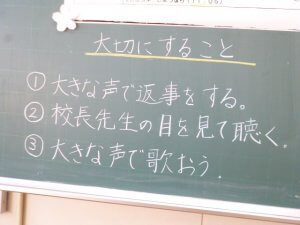 大切にすること
① 大きな声で返事をする。
② 校長先生の目を見て聴く。
③ 大きな声で歌おう.